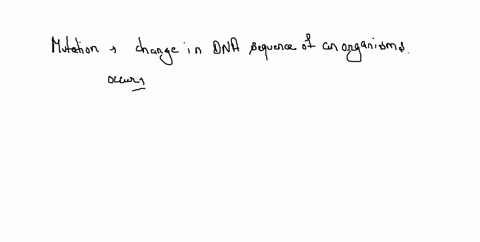 Mutation → change in DNA sequence of an organisms.
occurs